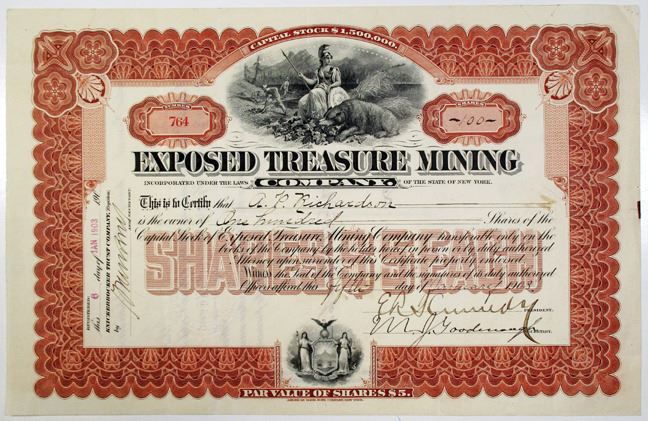 CAPITAL STOCK $1,500,000.
NUMBER
764
SHARES
-100-
EXPOSED TREASURE MINING
INCORPORATED UNDER THE LAWS COMPANY, OF THE STATE OF NEW YORK.
This is to Certify that A. P. Richardson
is the owner of One hundred Shares of the
Capital Stock of Exposed Treasure Mining Company transferable only on the
books of the Company by the holder hereof in person or by duly authorized
Attorney upon surrender of this Certificate properly endorsed.
Witness the Seal of the Company and the signatures of its duly authorized
Officers affixed this fifth day of January 1903
PRESIDENT.
M. J. Goodenough
REGISTERED:
this 6 day of JAN 1903 19
KNICKERBOCKER TRUST COMPANY, Registrar,
by
SHARES
PAR VALUE OF SHARES $5.